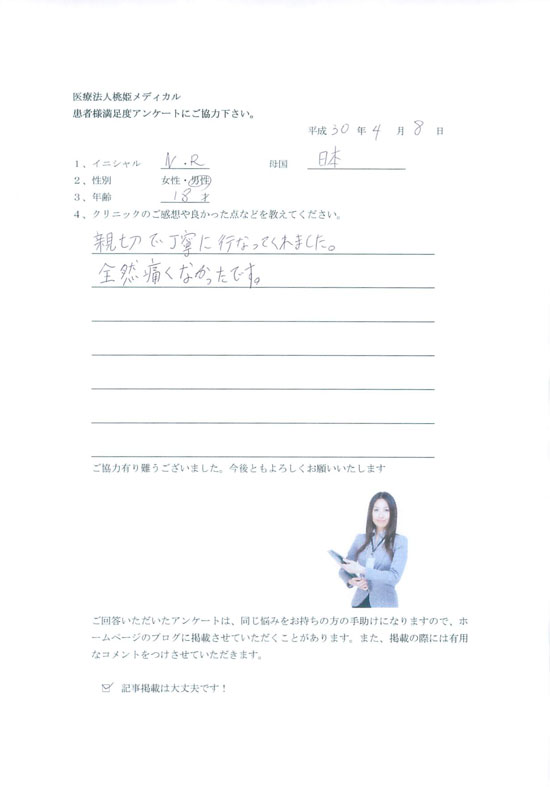 医療法人桃姫メディカル
患者様満足度アンケートにご協力下さい。
平成 30 年 4 月 8 日
1、イニシャル N.R 母国 日本
2、性別 女性・男性
3、年齢 18才
4、クリニックのご感想や良かった点などを教えてください。
親切で丁寧に行なってくれました。
全然痛くなかったです。
ご協力有り難うございました。今後ともよろしくお願いいたします
ご回答いただいたアンケートは、同じ悩みをお持ちの方の手助けになりますので、ホ
ームページのブログに掲載させていただくことがあります。また、掲載の際には有用
なコメントをつけさせていただきます。
☑ 記事掲載は大丈夫です!